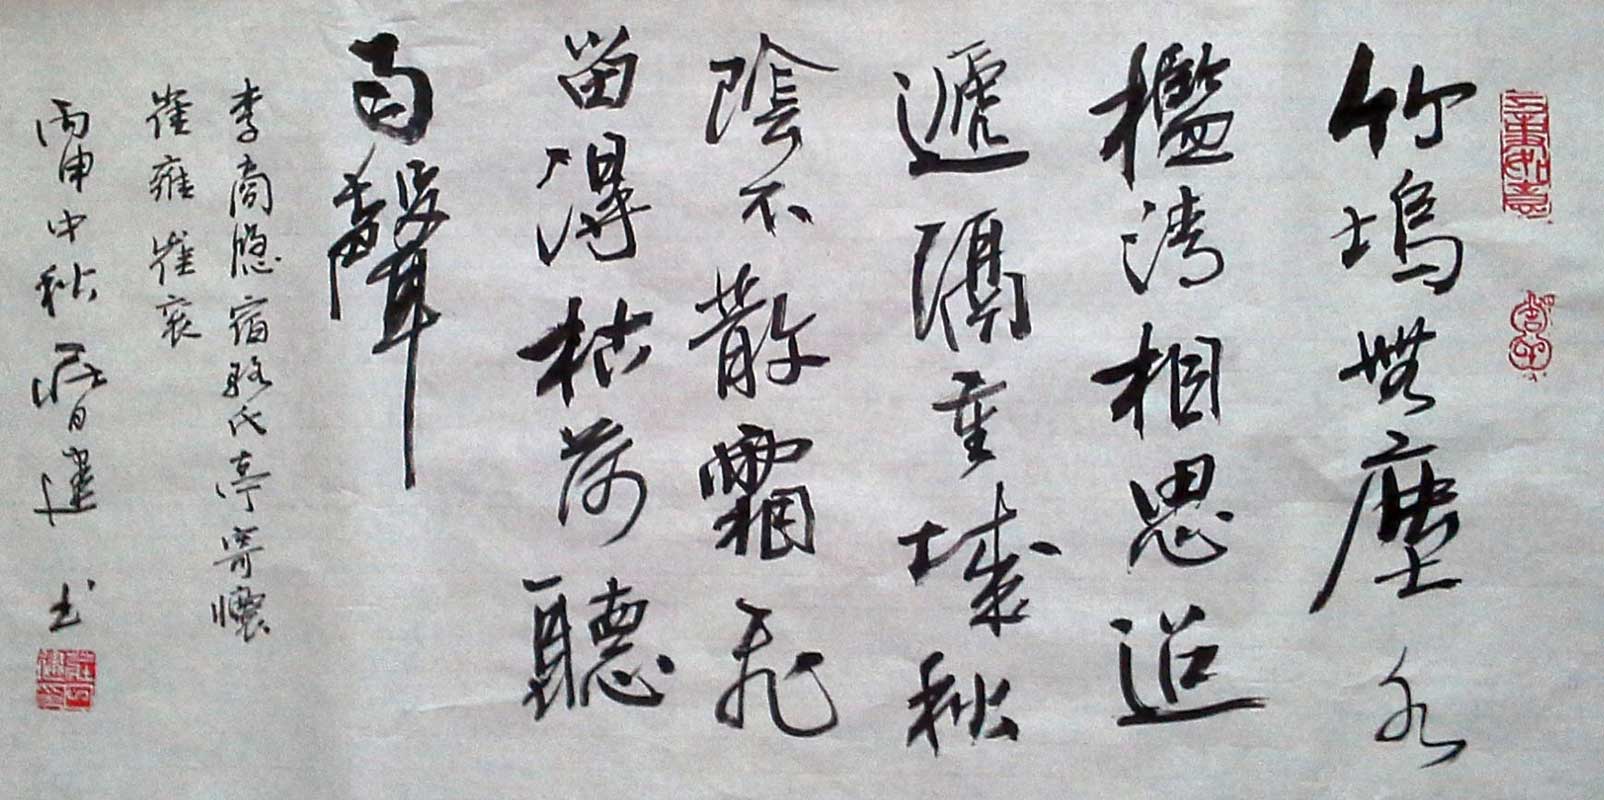 竹塢無塵水
檻清相思迢
遞隔重城秋
陰不散霜飛
留得枯荷聽
雨聲
李商隐宿骆氏亭寄懷
崔雍崔衮
丙申中秋 建书